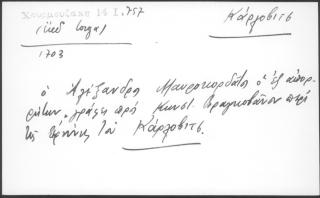 Χουρμουζάκη 14 I. 757
Κάρλοβιτς
1703
ὁ Ἀλέξανδρος Μαυροκορδάτος ὁ ἐξ ἀπορ-
ρήτων γράφει πρὸς Κωνστ. Βραγκοβάνον περὶ
τῆς εἰρήνης τοῦ Κάρλοβιτς.